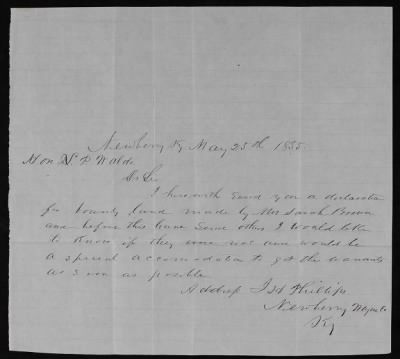 Newberry Ky May 25th 1855
Hon P Waldo
Dr Sir
I herewith Send you a declaration
for bounty land made by Mrs Sarah Brown
and before this have Sent others I would like
to Know if they have not come would be
a special accomodation to get the warrants
as Soon as possible
Address J Phillips
Newberry Wayne Co
Ky